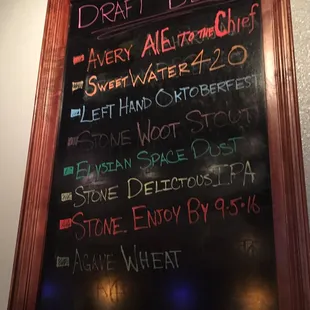 DRAFT
AVERY ALE TO THE CHIEF
SWEETWATER 420
LEFT HAND OKTOBERFEST
STONE WOOT STOUT
ELYSIAN SPACE DUST
STONE DELICTOUS IPA
STONE ENJOY BY 9·5·16
AGAVE WHEAT